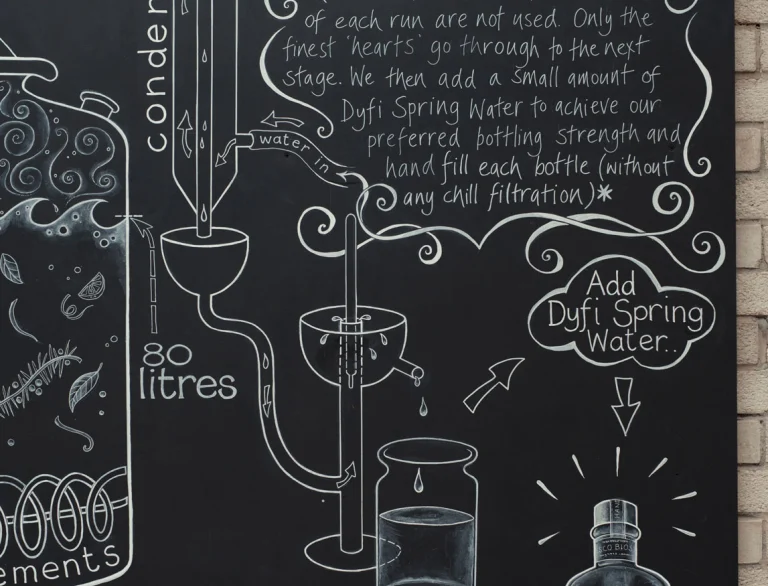 of each run are not used. Only the
finest 'hearts' go through to the next
stage. We then add a small amount of
Dyfi Spring Water to achieve our
preferred bottling strength and
hand fill each bottle (without
any chill filtration)*
conden
water in
80
litres
Add
Dyfi Spring
Water..
ements